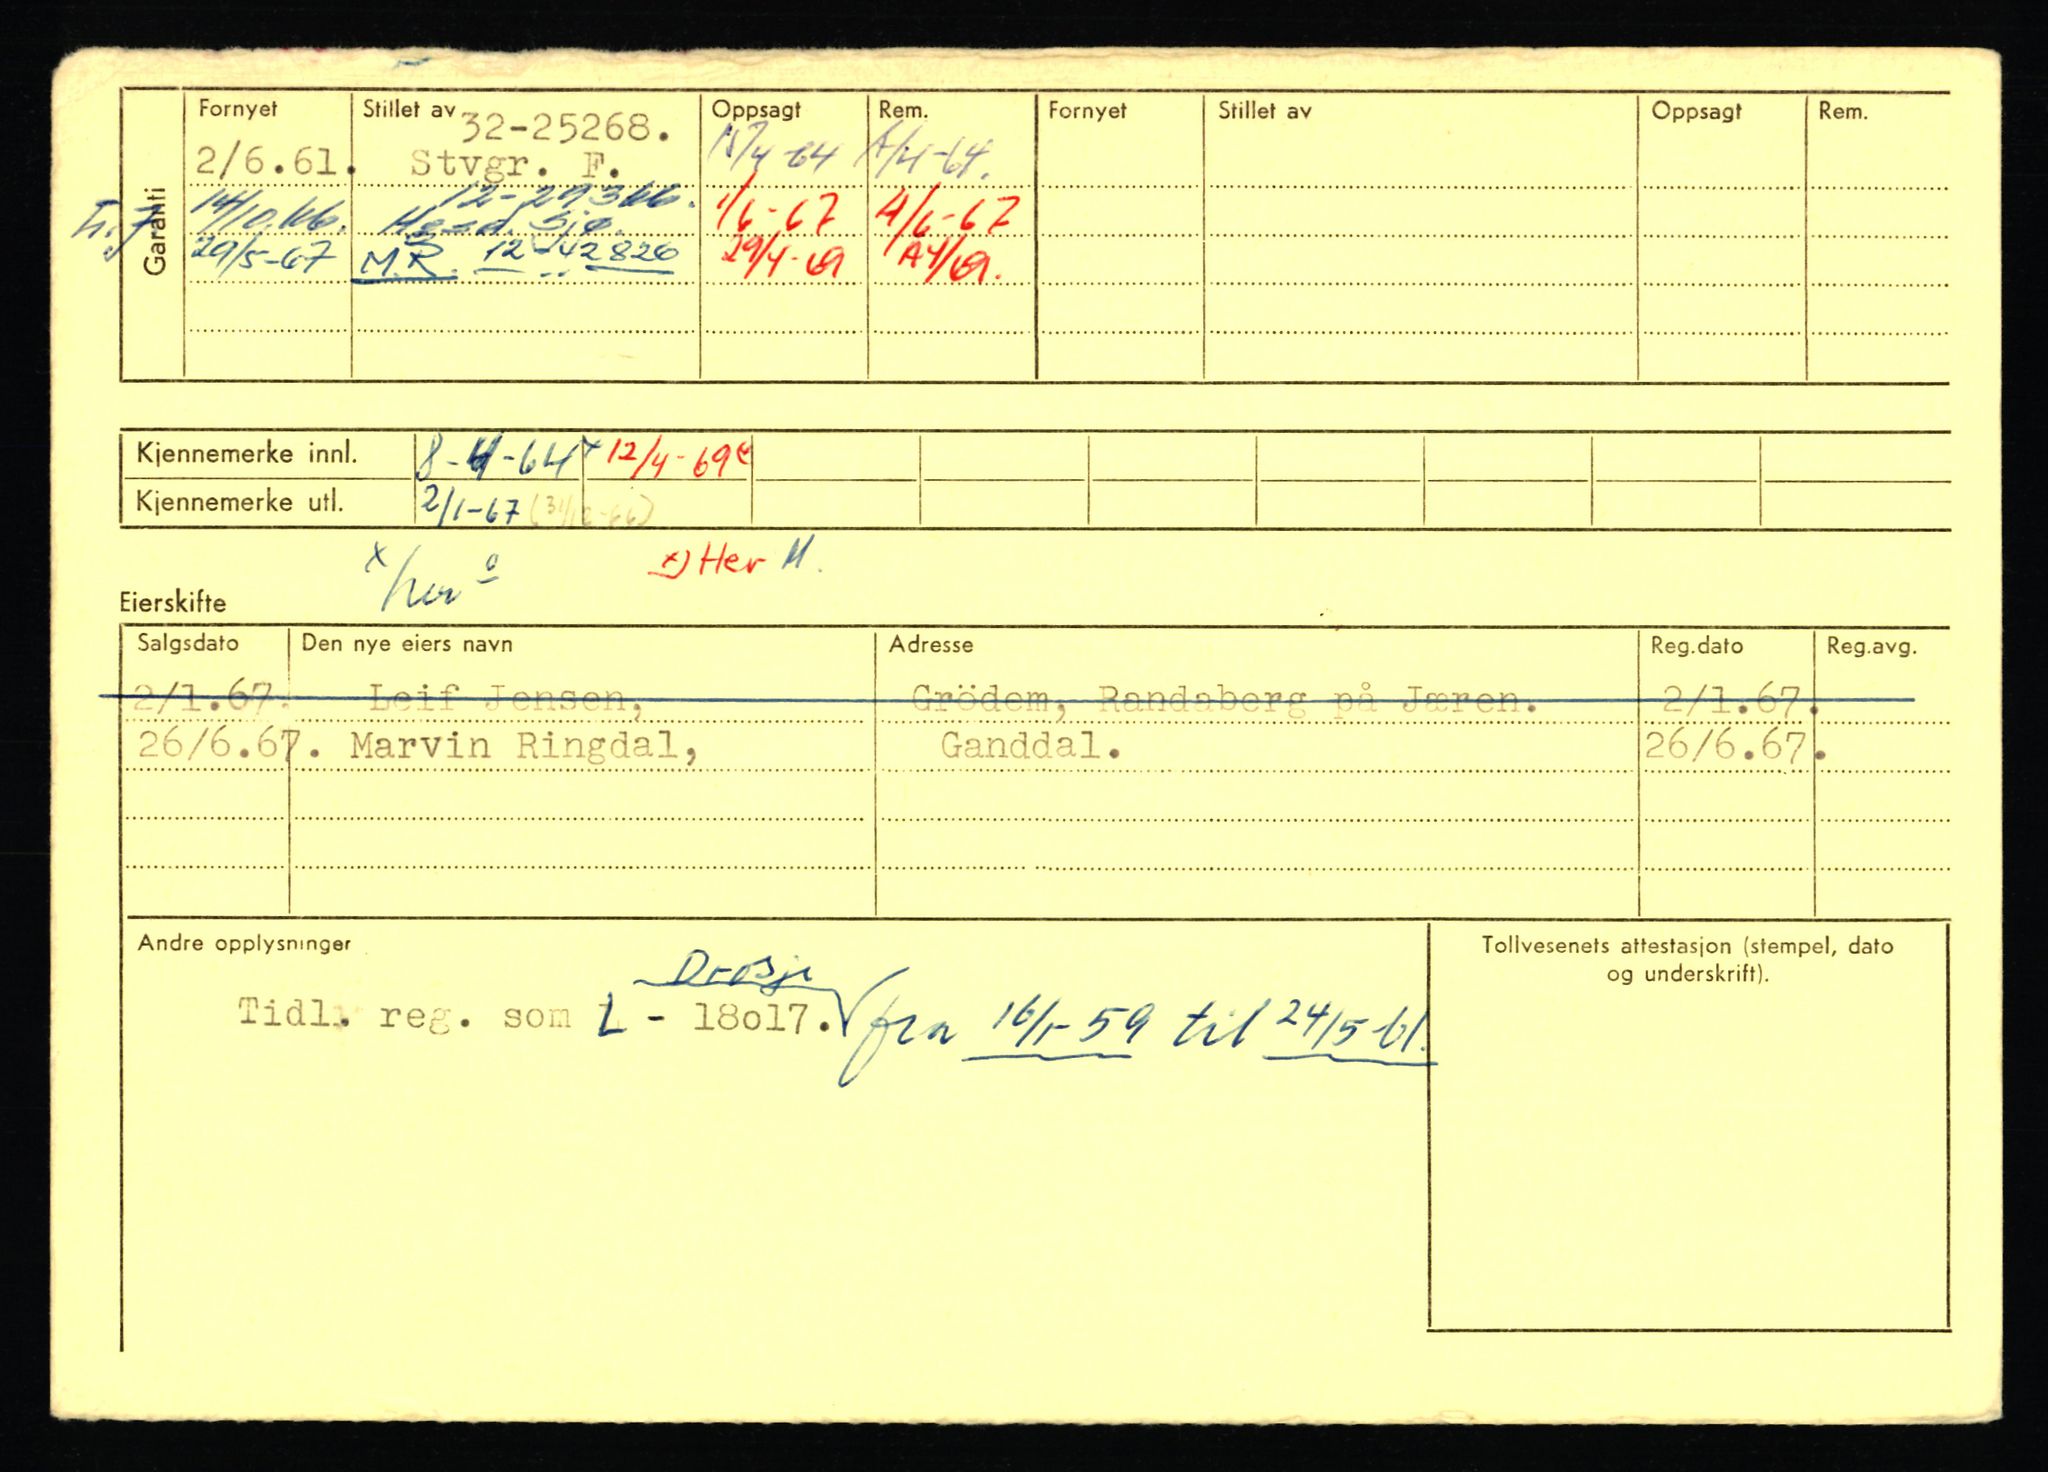 Garanti
Fornyet Stillet av Oppsagt Rem. Fornyet Stillet av Oppsagt Rem.
32-25268.
2/6.61. Stvgr. F. /4-64 /4-64.
14/10.66. 12-29366. 1/6-67 4/6-67
29/5-67 M.R. 12-42826 29/4-69 A4/69.
Kjennemerke innl. 8-4-64 x 12/4-69 x
Kjennemerke utl. 2/1-67 (31/12-66)
x/her o x) Her M.
Eierskifte
Salgsdato Den nye eiers navn Adresse Reg.dato Reg.avg.
2/1.67. Leif Jensen, Grödem, Randaberg på Jæren. 2/1.67.
26/6.67. Marvin Ringdal, Ganddal. 26/6.67.
Andre opplysninger Tollvesenets attestasjon (stempel, dato
og underskrift).
Drosje
Tidl. reg. som L - 18o17. fra 16/1-59 til 24/5-61.